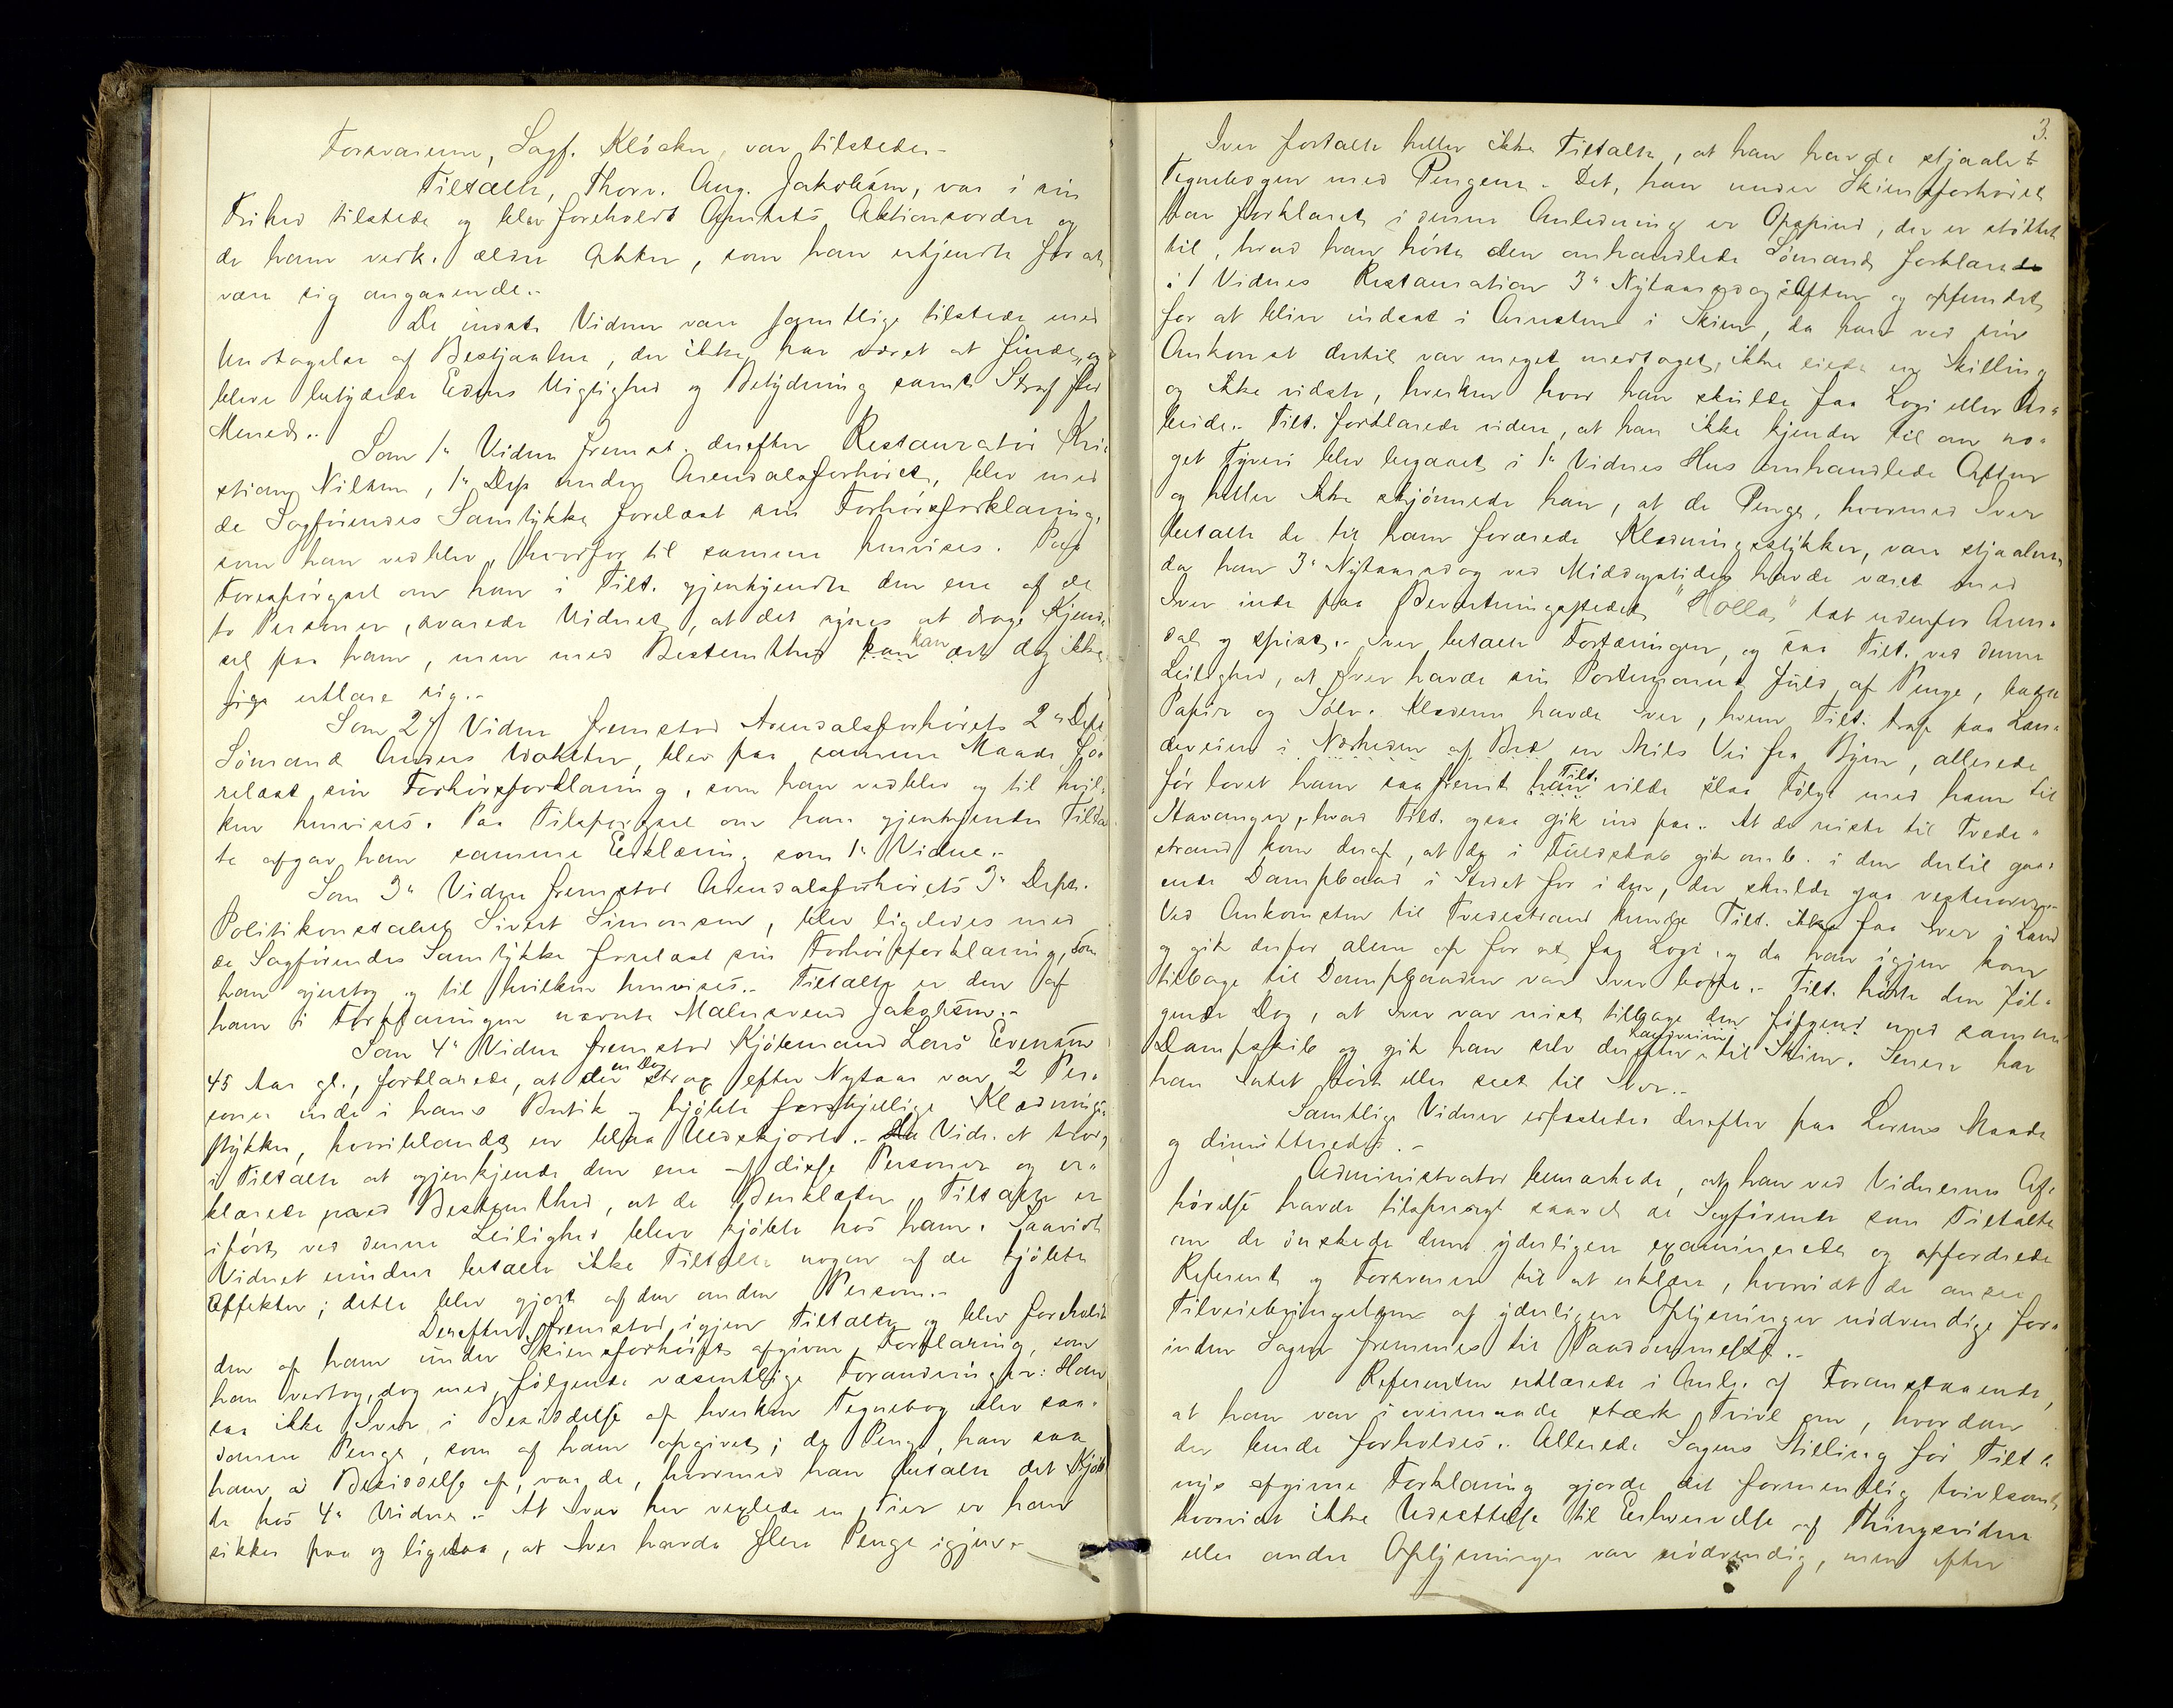 Forsvareren, Sagf. Klöcker, var tilstede.-
Tiltalte, Thorv. Aug. Jakobsen, var i sin
Frihed tilstede og blev foreholdt Amtets Aktionsordre og
de ham vedk. ældre Akter, som han erkjendte for at
være sig angaaende..
De indst. Vidner vare samtlige tilstede med
Undtagelse af Bestjaalne, der ikke har været at finde, og
bleve betydede Edens Vigtighed og Betydning samt Straf for
Mened..
Som 1ste Vidne fremst. derefter Restauratör Kri-
stian Nilsen, 1ste Dep. under Arendalsforhöret, blev med
de Sagförendes Samtykke forelæst sin Forhörsforklaring,
som han vedblev, hvorfor til samme henvises. Paa
Forespörgsel om han i Tilt. gjenkjendte den ene af de
to Personer, svarede Vidnet, at det synes at drage Kjend-
sel paa ham, men med Bestemthed kan han det dog ikke
sige udlade sig..
Som 2det Vidne fremstod Arendalsforhörets 2det Dep.
Sömand Anders Wohler, blev paa samme Maade fo-
relæst sin Forhörsforklaring, som han vedblev og til hvil-
ken henvises. Paa Tilspörgsel om han gjenkjendte Tiltal-
te afgav han samme Erklæring som 1ste Vidne.-
Som 3die Vidne fremstod Arendalsforhörets 3die Dep.
Politikonstabel Sivert Simonsen, blev ligeledes med
de Sagförendes Samtykke forelæst sin Forhörsforklaring, som
han gjentog og til hvilken henvises.. Tiltalte er den af
ham i Forklaringen nævnte Malersvend Jakobsen..
Som 4de Vidne fremstod Kjöbmand Lars Evensen
45 Aar gl., forklarede, at der en Dag strax efter Nytaar var 2 Per-
soner inde i hans Butik og kjöbte forskjellige Klædnings-
stykker, hvoriblandt en blaa Uldskjorte.- Vidnet tror
i Tiltalte at gjenkjende den ene af disse Personer og er-
klærede med Bestemthed, at de Benklæder, Tiltalte er
ifört ved denne Leilighed blev kjöbte hos ham. Saavidt
Vidnet mindes betalte ikke Tiltalte nogen af de kjöbte
Effekter; dette blev gjort af den anden Person.-
Derefter fremstod igjen Tiltalte og blev foreholdt
den af ham under Skiensforhöret afgivne Forklaring, som
han vedtog, dog med fölgende væsentlige Forandringer: Han
saa ikke Iver i Besiddelse af hverken Tegnebog eller saa-
danne Penge, som af ham opgivet; de Penge, han saa
ham i Besiddelse af, var de, hvormed han betalte det Kjöb-
te hos 4de Vidne.- At Iver her vexlede en Tier er han
sikker paa og ligesaa, at Iver havde flere Penge igjen.-
3.
Iver fortalte heller ikke Tiltalte, at han havde stjaalet
Tegnebogen med Pengene. Det, han under Skiensforhöret
har forklaret i denne Anledning er Opspind, der er stöttet
til, hvad han hörte den omhandlede Sömand forklare
i 1 Vidnes Restauration 3die Nytaarsdags Aften og opfundet
for at blive indsat i Arresten i Skien, da han ved sin
Ankomst dertil var meget medtaget, ikke eiede en Skilling
og ikke vidste, hverken hvor han skulde faa Logi eller Ar-
beide.. Tilt. forklarede videre, at han ikke kjender til om no-
get Tyveri blev begaaet i 1ste Vidnes Hus omhandlede Aften
og heller ikke skjönnede han, at de Penge, hvormed Iver
betalte de til ham forærede Klædningsstykker, vare stjaalne,
da han 3die Nytaarsdag ved Middagstider havde været med
Iver inde paa Bevertningsstedet "Holla" tæt udenfor Aren-
dal og spist.. Iver betalte Fortæringen, og saa Tilt. ved denne
Leilighed, at Iver havde sin Portemonnæ fuld af Penge, baade
Papir og Sölv. Klæderne havde Iver, hvem Tilt. traf paa Lan-
deveien i Nærheden af Bræ en Mils Vei fra Byen, allerede
för lovet ham saafremt han Tilt. vilde slaa Fölge med ham til
Stavanger, hvad Tilt. ogsaa gik ind paa.. At de reiste til Tvede-
strand kom deraf, at de i Fuldskab gik omb. i den dertil gaa-
ende Dampbaad i Stedet for i den, der skulde gaa vestover.-
Ved Ankomsten til Tvedestrand kunde Tilt. ikke faa Iver i Land
og gik derfor alene op for at faa Logi, og da han igjen kom
tilbage til Dampbaaden var Iver borte.- Tilt. hörte den föl-
gende Dag, at Iver var reist tilbage den fölgende med samme
Dampskib og gik han selv derefter landeveien til Skien. Senere har
han Intet hört eller seet til Iver..
Samtlige Vidner edfæstedes derefter paa Lovens Maade
og dimitteredes.-
Administrator bemærkede, at han ved Vidnernes Af-
hörelse havde tilspurgt saavel de Sagförende som Tiltalte
om de önskede dem yderligere examinerede og opfordrede
Referent og Forsvarer til at erklære, hvorvidt de ansee
Tilveiebringelsen af yderligere Oplysninger nödvendige for-
inden Sagen fremmes til Paadömmelse.-
Referenten erklærede i Anl. af Foranstaaende,
at han var i overmaade stærk Tvivl om, hvordan
der burde forholdes.. Allerede Sagens Stilling för Tilt.s
nys afgivne Forklaring gjorde det formentlig tvivlsomt,
hvorvidt ikke Udsættelse til Erhvervelse af Thingsvidne
eller andre Oplysninger var nödvendig, men efter